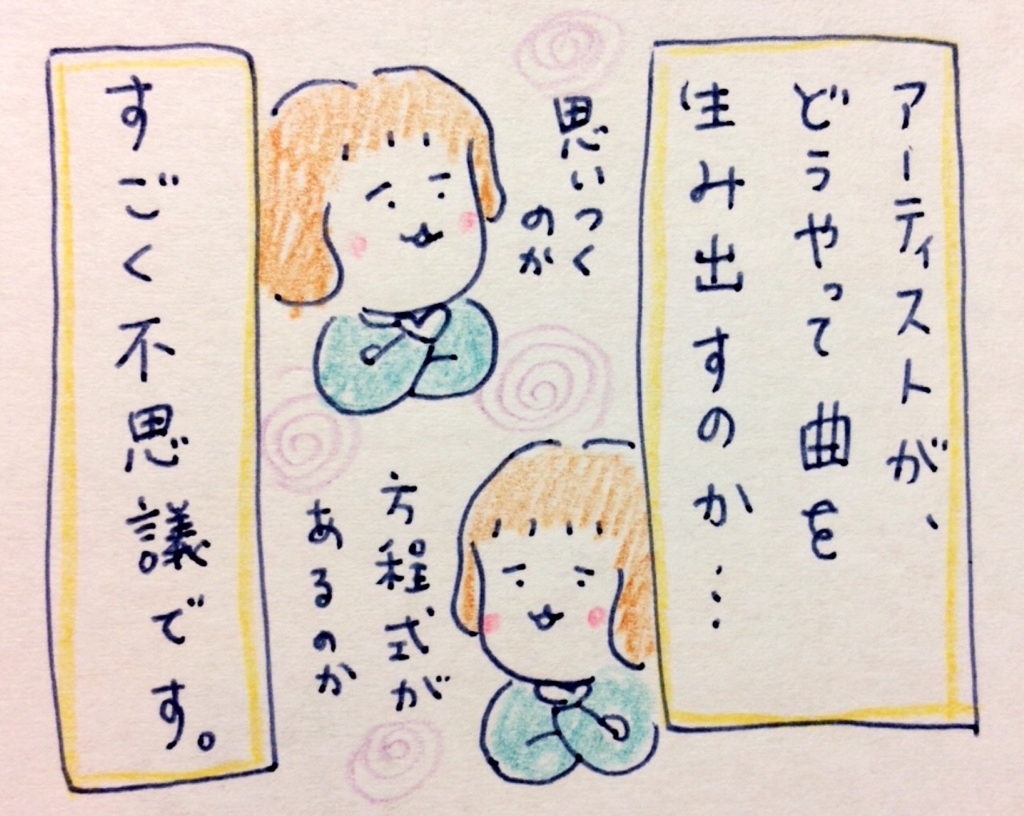 アーティストが、
どうやって曲を
生み出すのか…
思いつく
のか
方程式が
あるのか
すごく不思議です。